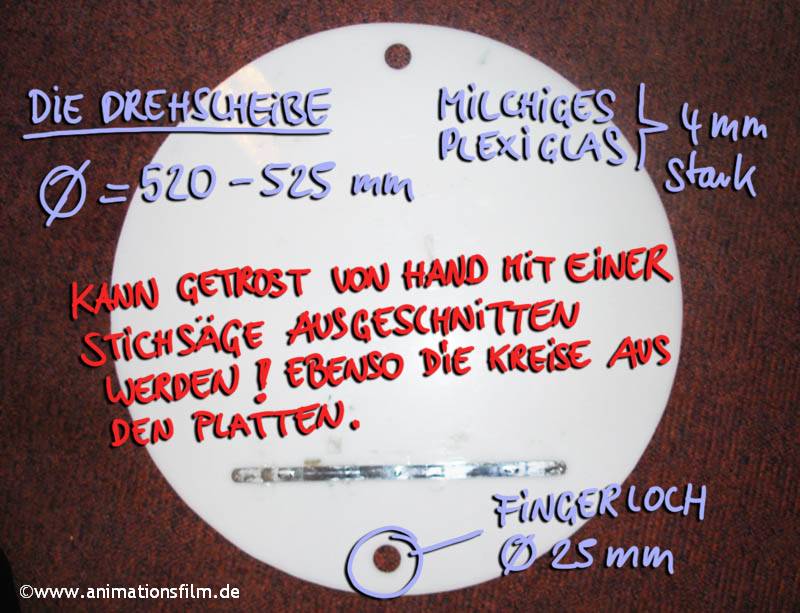 DIE DREHSCHEIBE
Ø = 520 - 525 mm
MILCHIGES
PLEXIGLAS
4 mm
stark
KANN GETROST VON HAND MIT EINER
STICHSÄGE AUSGESCHNITTEN
WERDEN! EBENSO DIE KREISE AUS
DEN PLATTEN.
FINGERLOCH
Ø 25 mm
©www.animationsfilm.de